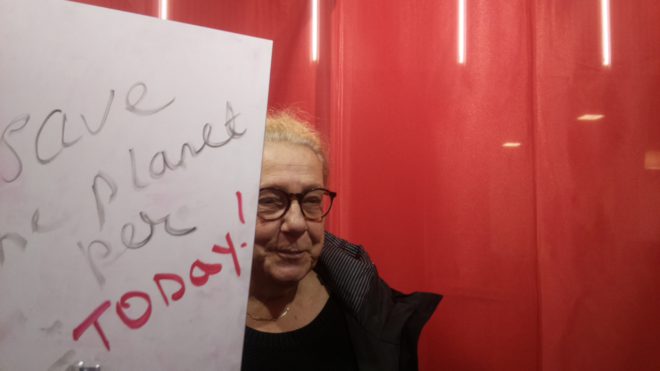 save
ne planet
per
TODAY!